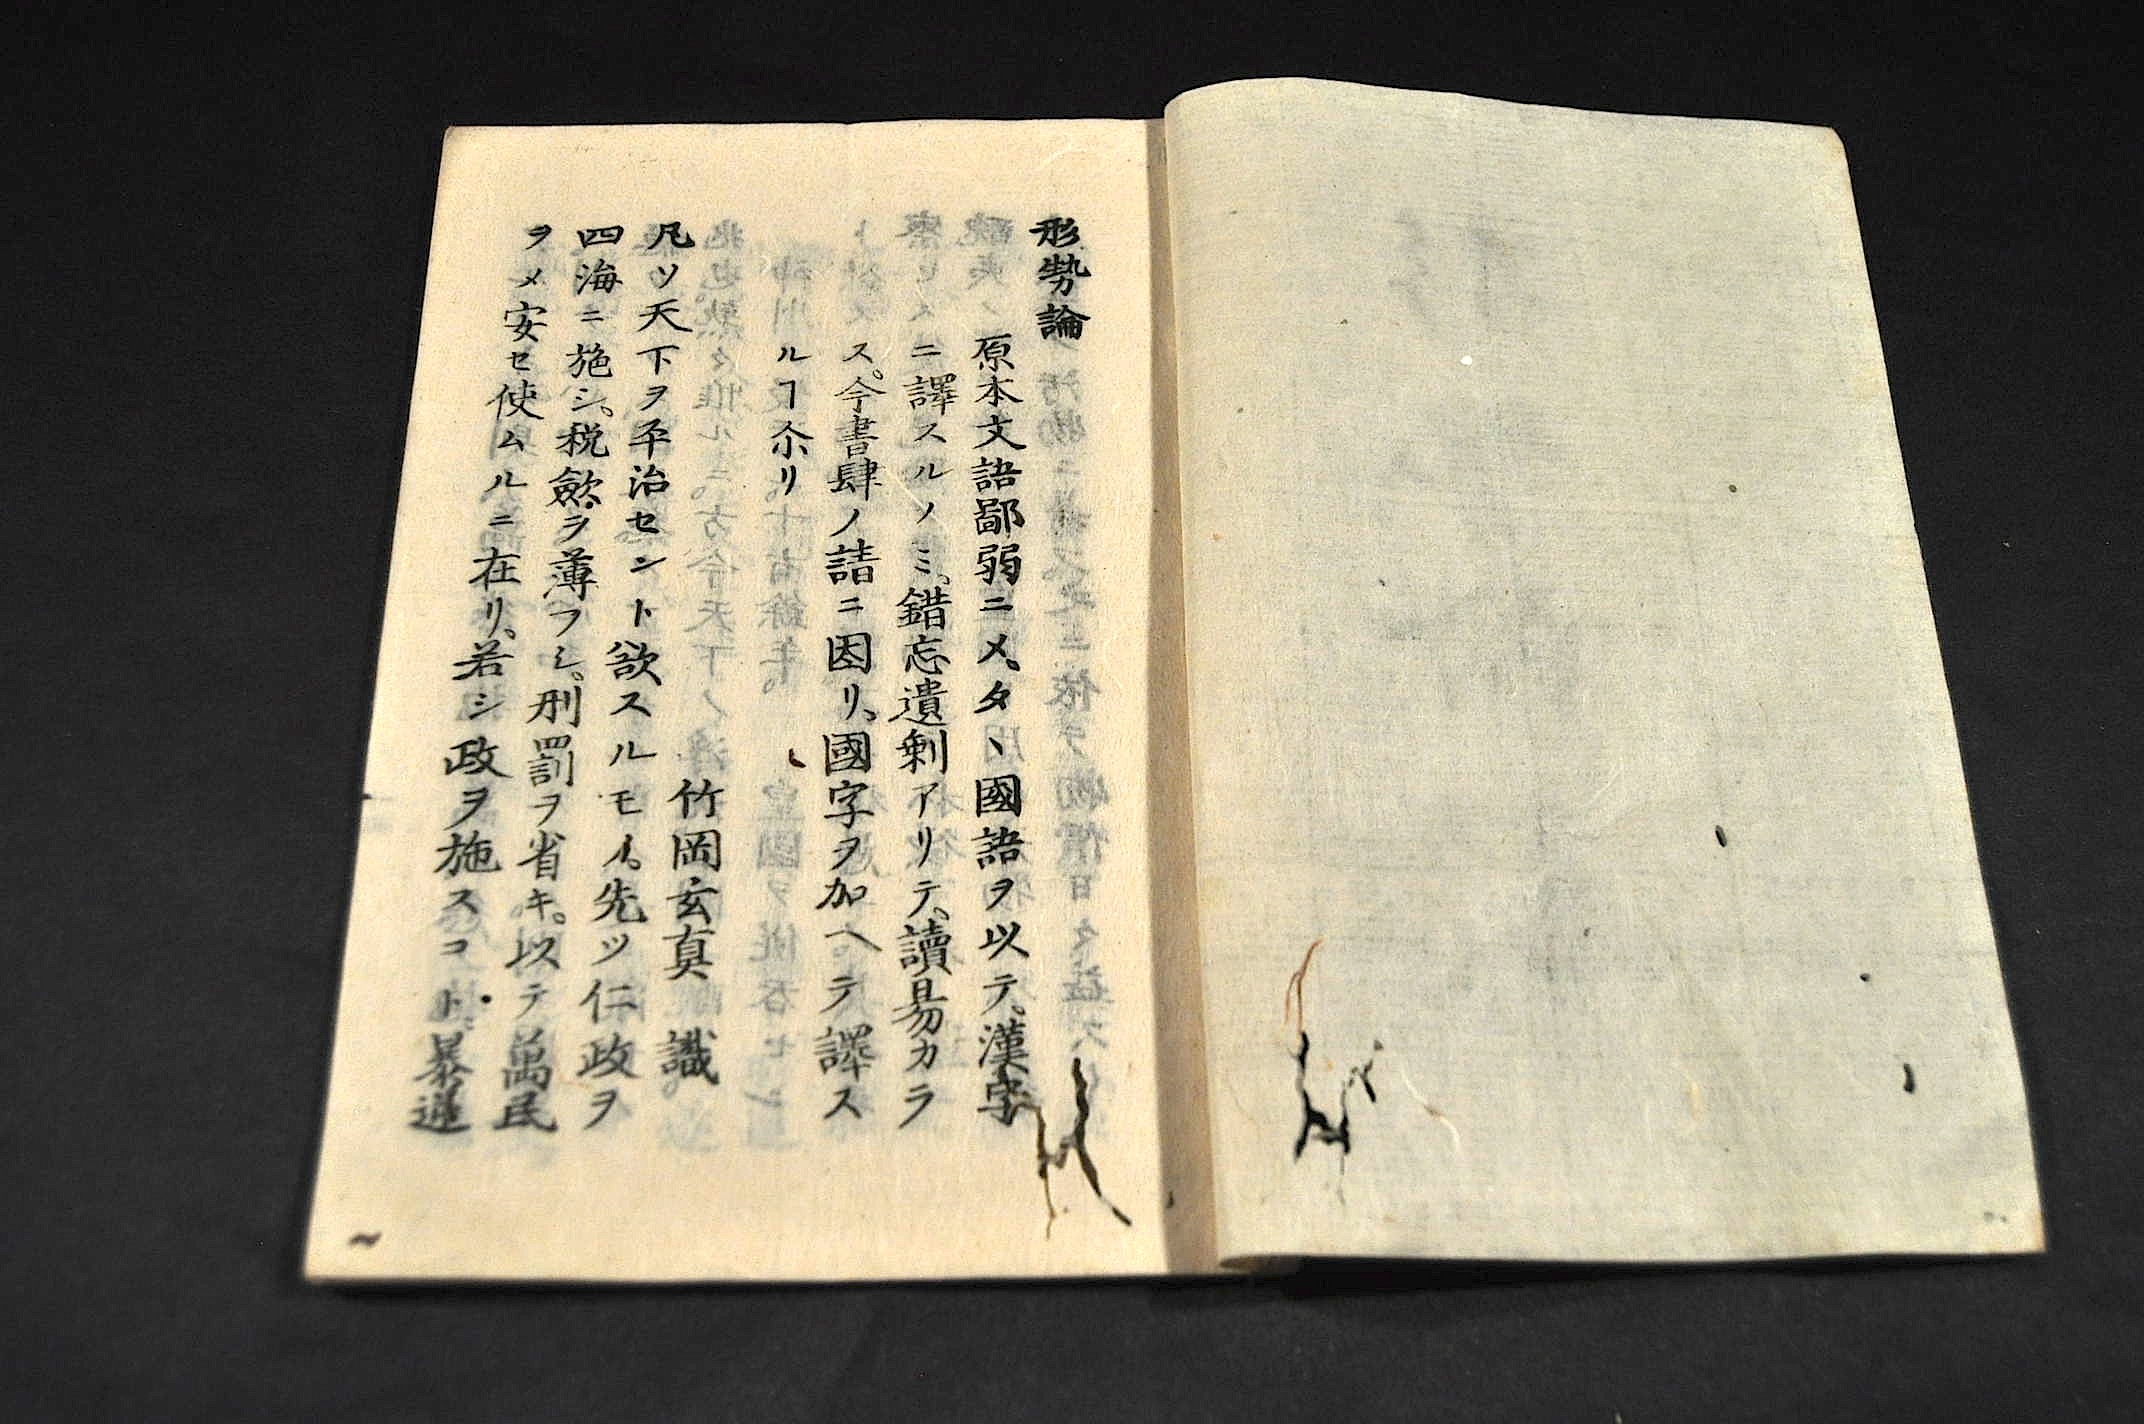 形勢論
原本文語鄙弱ニメ、タヽ國語ヲ以テ。漢字
ニ譯スルノミ、錯忘遺剰アリテ、讀易カラ
ス。今書肆ノ請ニ因リ、國字ヲ加ヘテ譯ス
ルヿ尒リ
竹岡玄真 識
凡ソ天下ヲ平治セント欲スルモノハ。先ツ仁政ヲ
四海ニ施シ。税歛ヲ薄フシ。刑罰ヲ省キ。以テ萬民
ヲメ安セ使ムルニ在リ、若シ政ヲ施スコト、暴逆